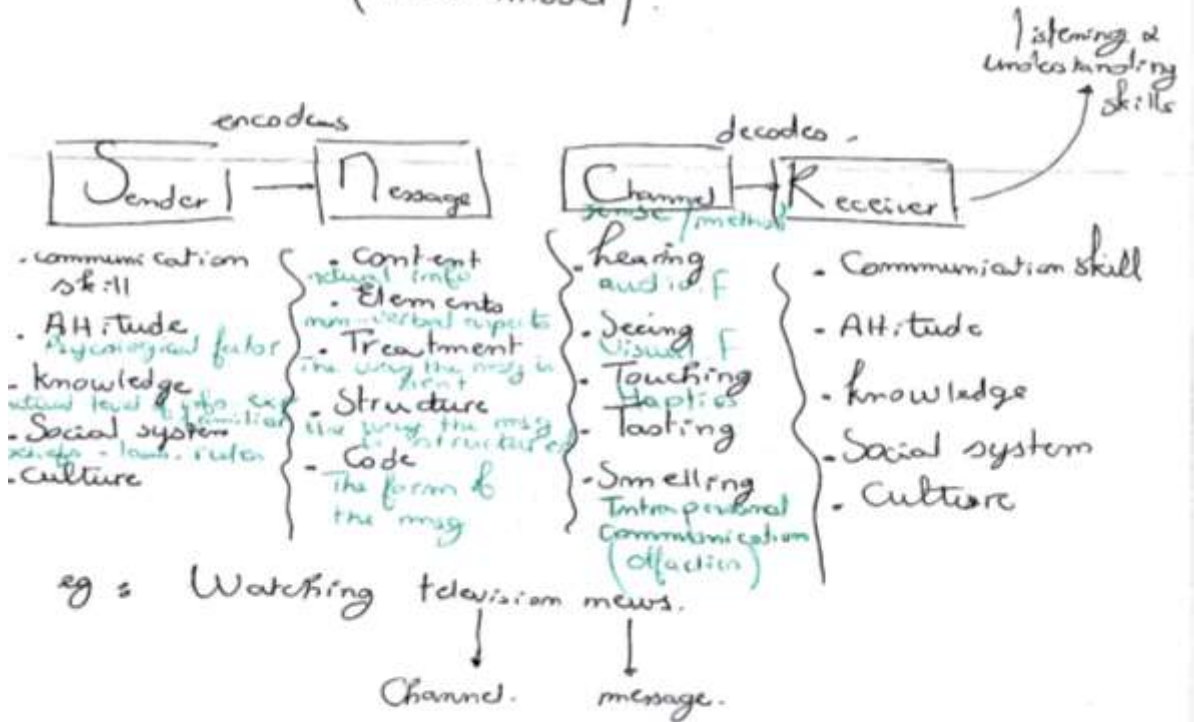 listening &
understanding
skills
encodes
decodes.
Sender
Message
Channel
sense/method
Receiver
. communication
skill
. Attitude
Psycological factor
. knowledge
. Social system
. culture
. Content
actual info
. Elements
non-verbal aspects
. Treatment
The way the msg is
sent
. Structure
the way the msg
is structured
. Code
The form of
the msg
. hearing
audio. F
. Seeing
Visual F
. Touching
Haptics
. Tasting
. Smelling
Intrapersonal
Communication
(olfaction)
. Communication skill
. Attitude
. knowledge
. Social system
. Culture
eg : Watching television news.
Channel.
message.